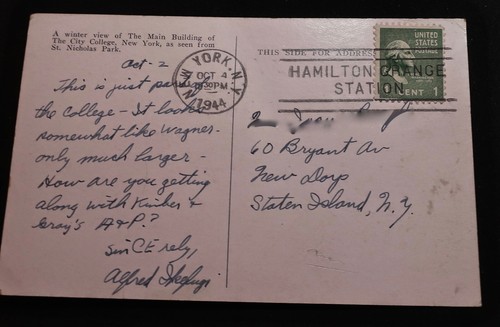 A winter view of The Main Building of
The City College, New York, as seen from
St. Nicholas Park.
Oct- 2
This is just part of
the College - It looks
somewhat like Wagner -
only much larger -
How are you getting
along with Kimber &
Gray's A&P?
sinCErely,
Alfred
THIS SIDE FOR ADDRESS
NEW YORK, N.Y.
OCT 4
30PM
1944
HAMILTON GRANGE
STATION
UNITED
STATES
POSTAGE
CENT 1
60 Bryant Av
New Dorp
Staten Island, N.Y.